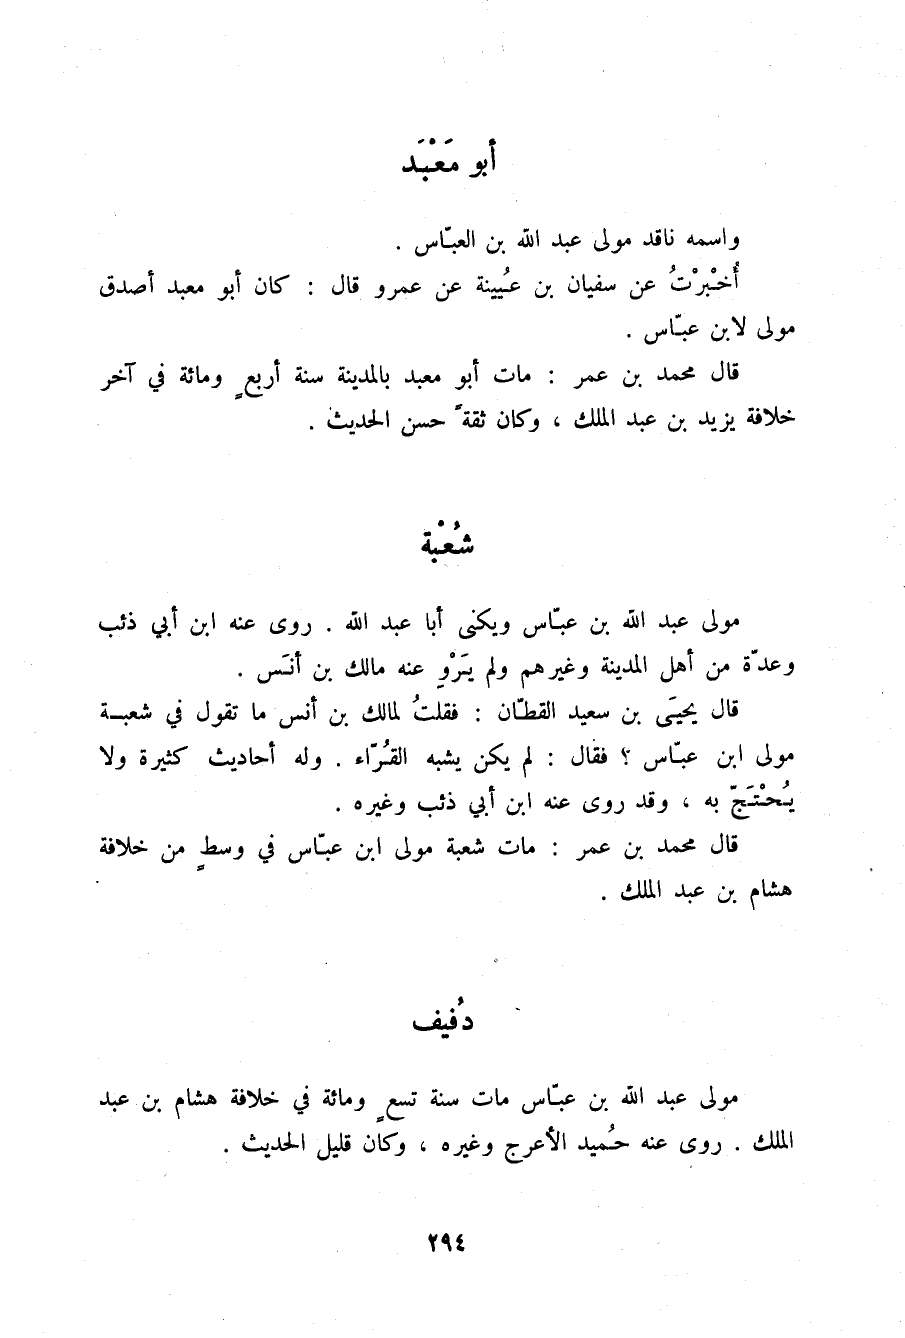 أبو مَعْبَد
واسمه ناقد مولى عبد الله بن العبّاس .
أُخبْرْتُ عن سفيان بن عُيينة عن عمرو قال : كان أبو معبد أصدق
مولى لابن عبّاس .
قال محمد بن عمر : مات أبو معبد بالمدينة سنة أربعٍ ومائة في آخر
خلافة يزيد بن عبد الملك ، وكان ثقةً حسن الحديث .
شُعْبة
مولى عبد الله بن عبّاس ويكنى أبا عبد الله . روى عنه ابن أبي ذئب
وعدّة من أهل المدينة وغيرهم ولم يَرْوِ عنه مالك بن أنَس .
قال يحيَى بن سعيد القطّان : فقلتُ لمالك بن أنس ما تقول في شعبـة
مولى ابن عبّاس ؟ فقال : لم يكن يشبه القُرّاء . وله أحاديث كثيرة ولا
يُحْتَجّ به ، وقد روى عنه ابن أبي ذئب وغيره .
قال محمد بن عمر : مات شعبة مولى ابن عبّاس في وسطٍ من خلافة
هشام بن عبد الملك .
دُفيف
مولى عبد الله بن عبّاس مات سنة تسعٍ ومائة في خلافة هشام بن عبد
الملك . روى عنه حُميد الأعرج وغيره ، وكان قليل الحديث .
٢٩٤